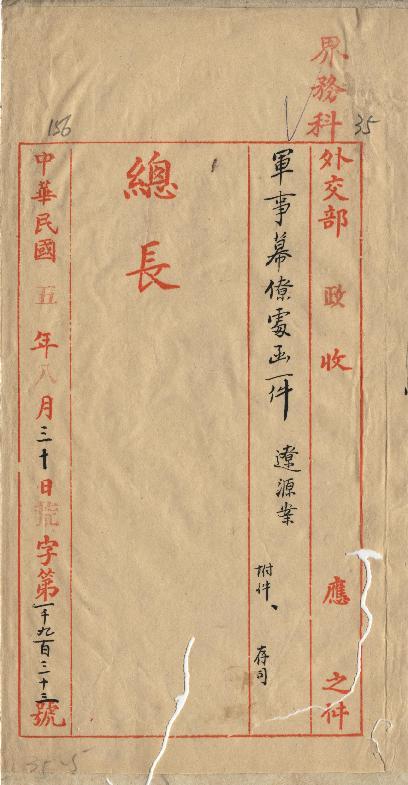 界務科
35
外交部 政 收 應 之件
軍事幕僚處函一件 遼源案
附件、 存司
總長
156
中華民國 五 年 八 月 三十 日 荒 字第 一千九百二十三 號